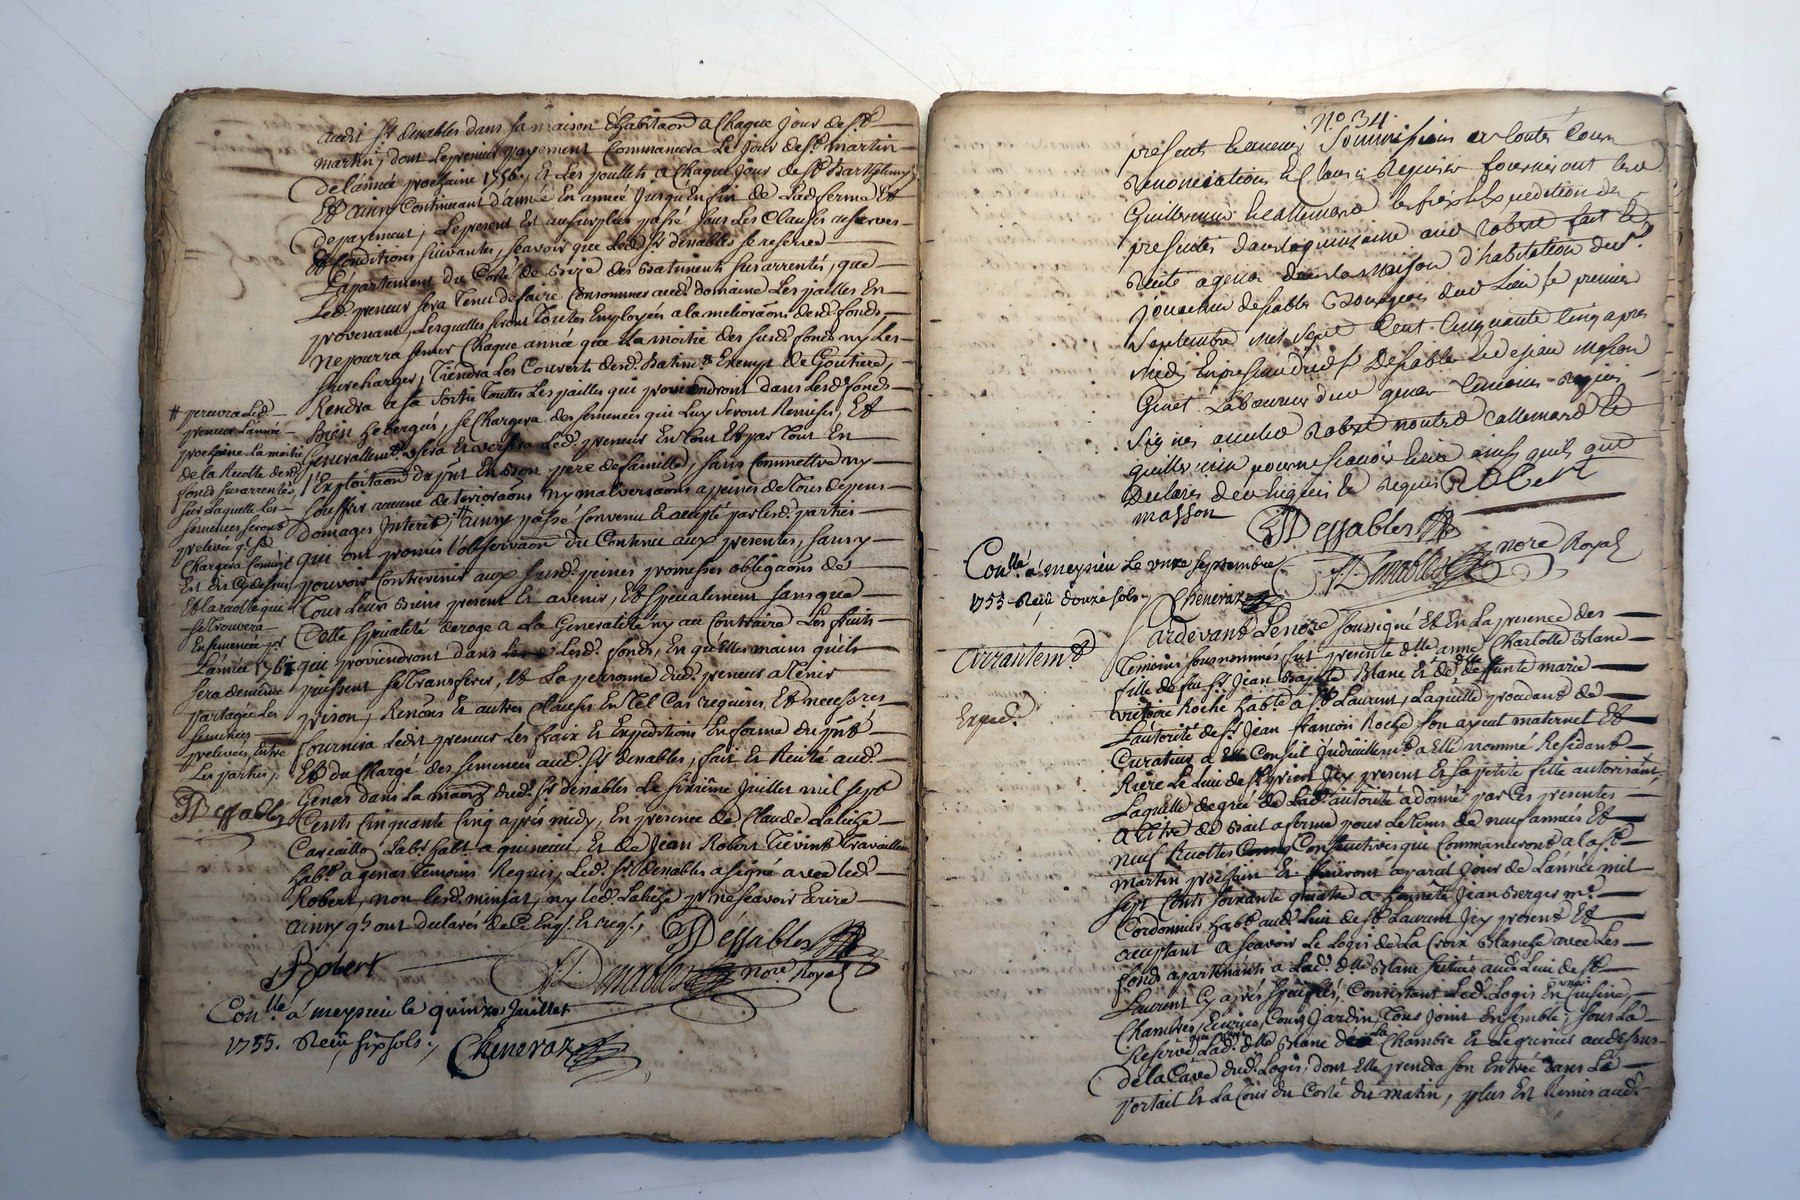 audt Sr. denables dans sa maison d'habitaon a Chaque jour de St.
martin, dont Le premier payement Commancera Le jour de St. martin
de l'année prochaine 1756, Et Les poullets a Chaque jour de St. Barthelemy
Et ainsy Continuant d'année En année jusqu'En fin de Lad. ferme Et
de payement, Le present Est au surplus passé sous Les Clauses reserves
Et Conditions suivantes, scavoir que Led. Sr. denables se reserve
L'apartement du Costé de Bize des Batiments susarrentés, que
Led. preneur sera Tenu de faire Consommer aud. domaine Les pailles En
provenant, Lesquelles seront Toutes Employées a la melioraon desd. fonds,
Ne pourra semer Chaque année que La moitié des susd. fonds ny Les
surcharger, Tiendra Les Couverts desd. Batimts. Exempt de Goutiere,
Rendra a sa sortie Toutes Les pailles qui proviendront dans Lesd. fonds
Bien hebergés, se Chargera des semences qui Luy seront Remises, Et
Generallemt. usera Led. preneur En tout Et par Tout En
l'Exploitaon du pnt En Bon pere de famille, sans Commettre ny
souffrir aucune deterioraons ny malversaons a peines de Tous depens
domages Interets, # ainsy passé Convenu Et accepté par Lesd. parties
qui ont promis l'observaon du Contenu aux presentes, sans y
pouvoir Contrevenir aux susd. peines promesses obligaons de
Tous Leurs Biens present Et avenir, Et specialement sans que
Cette specialité deroge a La Generalité ny au Contraire Les fruits
qui proviendront dans Lesd. fonds, En quelles mains qu'ils
puissent se Transferer, Et La personne dud. preneur a Tenir
prison, Renons Et autres Clauses En Tel Cas requises, Et necessres
fournira Ledt preneur Les fraix Et Expeditions En forme du pnt
Et du Chargé des semences aud. Sr. denables, fait Et Recité aud.
Genas dans La maon dud. Sr. denables Le sixieme Juillet mil sept
Cents Cinquante Cinq après midy, En presence de Claude Labize
Labr. habt. a quincieu, Et de Jean Robert Travailleur
habt. a genas Temoins Requis, Led. Sr. denables a signé avec led.
Robert, non led. minsat, ny led. Labize pr. ne scavoir Ecrire
ainsy qs. ont declarés de Ce Enqs. Et reqs.,
# percevra Led.
preneur L'année
prochaine La moitié
de la Recolte desd.
fonds susarrentés,
sur Laquelle Les
semences seront
prelevés
Chargera Comm'il
Est dit Cy dessus,
Et la recolte que
se Trouvera
Ensemencée pr.
L'année
sera de même
partagée Les
semences
prelevées Entre
Les parties,
Dessables
Dessables
Robert
Denables nore Royal
Conllé a meysieu le quinze juillet
1755. Reçu six sols,
Cheneraz
No. 34
present
Renonciations Requises fourniront
Guillermin Et allemand les fraix Et Expedition des
presentes dans la quinzaine fait Et
Recité a genas dans la maison d'habitation de Sr.
joachim desables Bourgeois dud. Lieu le premier
septembre mil sept Cent Cinquante Cinq apres
midi En presence dud. Sr. Desables
Laboureur dud. genas temoins Requis
signés avec led. robert non led. allemand Et
guillermin pour ne scavoir Ecrire ainsi quils ont
declarés de ce Enquis Et Requis Robert
masson
Dessables
Denables nore Royal
Conllé a meysieu Le onze septembre
1755 Reçu douze sols, Cheneraz
Arrantemt
Expedé.
Pardevant Le nore soussigné Et En La presence des
Temoins sousnommés fut presente dlle. anne Charlotte Blanc
fille de feu Sr. Jean Baptiste Blanc Et de deffunte marie
victoire Roche habte. a St. Laurent, Laquelle procedant de
L'autorité de Sr. Jean françois Roche son ayeul maternel Et
Curateur Et Conseil Judiciellement a Elle nommé Residant
Riere Le Lieu de St. priest Icy present Et sa petite fille autorisant,
Laquelle de gré de Lad. autorité a donné par Ces presentes
a Titre de Bail a ferme pour Le Tems de neuf années Et
neuf Recoltes Consecutives qui Commanceront a la St.
martin prochain Et finiront a pareil jour de L'année mil
sept Cents soixante quatre a honnête Jean Berger me.
Cordonnier habt. aud. Lieu de St. Laurent Icy present Et
acceptant a scavoir Le Logis de La Croix Blanche avec Les
fonds apartenants a Lad. dlle. Blanc situés aud. Lieu de St.
Laurent Cy après specifiés, Consistant Led. Logis En Cuisine,
Chambres, Ecuries, Cour, Jardin, Tous Joint Ensemble, sous La
Reserve que fait Lad. dlle. Blanc de La Chambre Et Le grenier audessus
de la Cave dud. Logis, dont Elle prendra son Entrée dans Le
portail Et La Cour du Costé du matin, plus Est Remis aud.